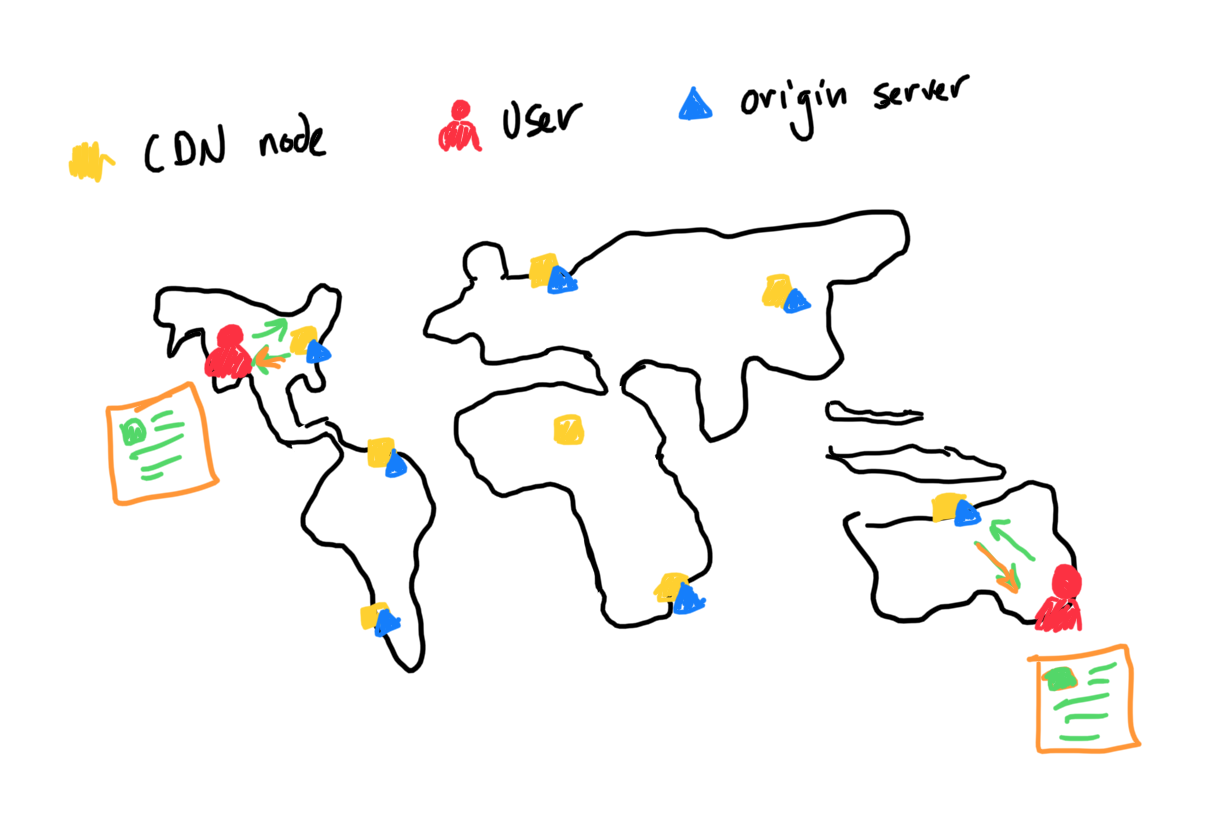 CDN node
User
origin server